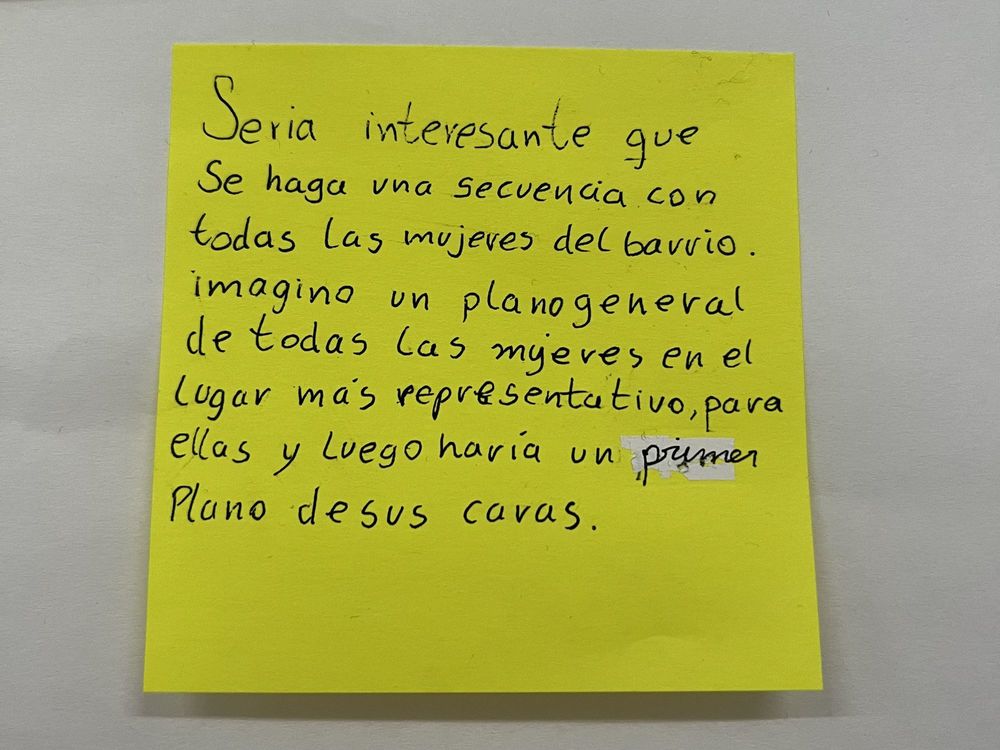 Seria interesante que
Se haga una secuencia con
todas las mujeres del barrio.
imagino un plano general
de todas las mujeres en el
lugar más representativo, para
ellas y luego haría un primer
Plano de sus caras.